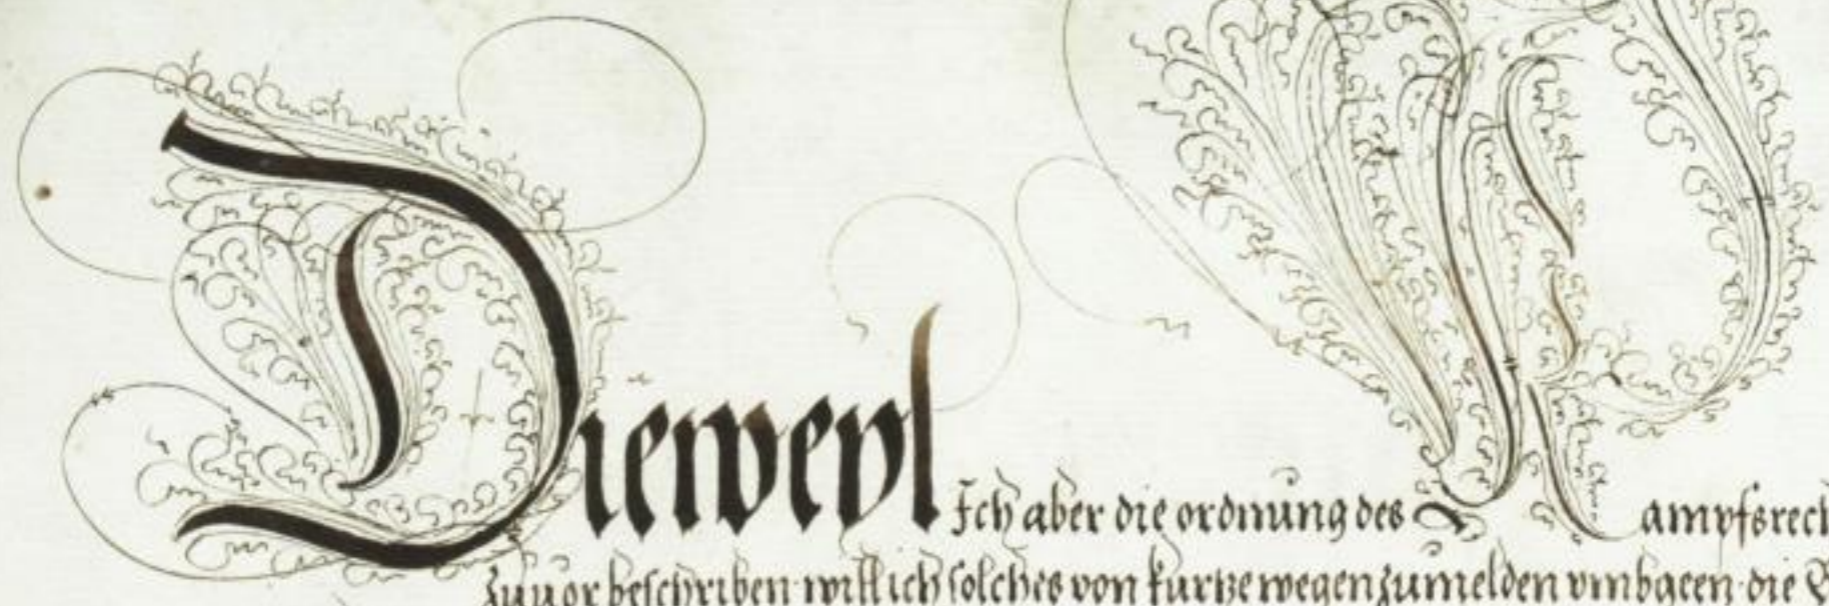 Dieweyl Ich aber die ordnung des Kampfsrech
zuuor beschriben will ich solches von kurtze wegen zumelden vmbgeen die